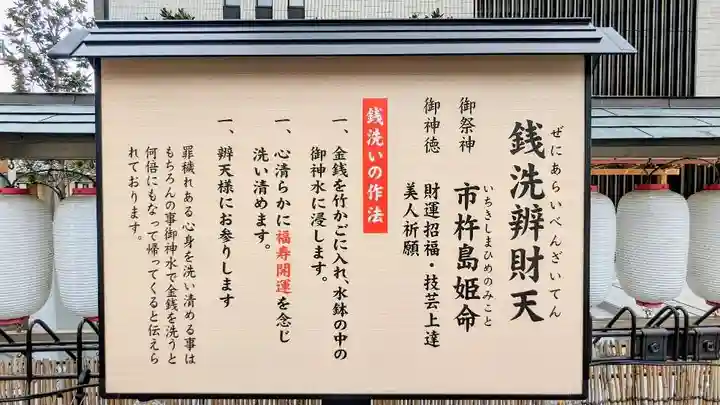 ぜにあらいべんざいてん
銭洗辨財天
御祭神
いちきしまひめのみこと
市杵島姫命
御神徳
財運招福・技芸上達
美人祈願
銭洗いの作法
一、金銭を竹かごに入れ、水鉢の中の
御神水に浸します。
一、心清らかに福寿開運を念じ
洗い清めます。
一、辨天様にお参りします
罪穢れある心身を洗い清める事は
もちろんの事御神水で金銭を洗うと
何倍にもなって帰ってくると伝えら
れております。